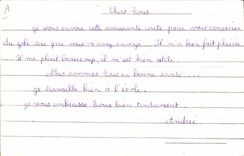 A
Chers Tous
je vous envoie cette amusante carte pour vous remercier
du joli sac que vous m'avez envoyé... Il m'a bien fait plaisir
... Il me plaît beaucoup, il m'est bien utile.
Nous sommes tous en bonne santé....
je travaille bien à l'école.
je vous embrasse tous bien tendrement.
Andrée